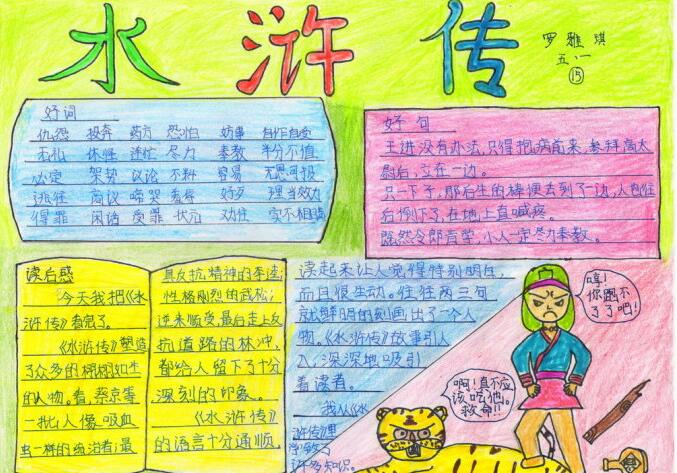 水浒传
罗雅琪
五、一
15
好词
仇怨 投奔 药方 恐怕 妨事 自作自受
无礼 休怪 连忙 尽力 奉教 半分不值
必定 架势 议论 不料 容易 无恩可报
逃往 商议 啼哭 好歹 理当效力
得罪 闲话 受罪 状元 劝住 实不相瞒
好句
王进没有办法,只得抱病前来,参拜高太
尉后,立在一边。
只一下子,那后生的棒便丢到了一边,人也往
后倒下了,在地上直喊疼。
既然令郎肯学,小人一定尽力奉教。
读后感
今天我把《水
浒传》看完了。
《水浒传》塑造
了众多的栩栩如生
的人物。看,蔡京等
一批人像吸血
虫一样的统治者;最
具反抗精神的李逵;
性格刚烈的武松;
逆来顺受,最后走上反
抗道路的林冲,
都给人留下了十分
深刻的印象。
《水浒传》
的语言十分通顺
读起来让人觉得特别明白,
而且很生动。往往两三句
就鲜明的刻画出了一个人
物。《水浒传》故事引人
入,深深地吸引
着读者。
我从《水
浒传》里
学到了
许多知识。
哼!
你跑不
了了吧!
啊!真不应
该吃他。
救命!!
王